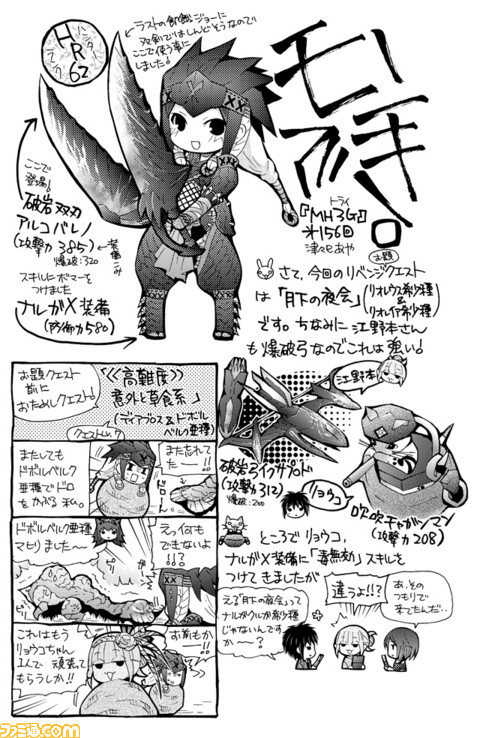 モーキ
アハ!。
ハンター
ランク
HR
62
ラストの飢餓ジョーに
双剣ではしんどそうなので
ここで使う事に
しました!
トライ
『MH3G』
オ156回
津々巳あや
ここで
登場!
破岩双刃
アルコバレノ
(攻撃力345)←装備こみ
爆破:320
スキルにボマーを
つけました
ナルガX装備
(防御力580)
お題
さて、今回のリベンジクエスト
は「月下の夜会」(リオレウス希少種
&
リオレイア希少種)
です。ちなみに江野本さん
も爆破弓なのでこれは強い!
お題クエスト
前に
おためしクエスト!
《高難度》
意外と草食系」
(ディアブロス&ドボル
ベルク亜種)
クエストLv.9
また忘れて
たー!!
ドローン
またしても
ドボルベルク
亜種でドロ
をかぶる私。
ドボルベルク亜種
マヒりました〜
えっ何も
できない
よ!!?
これはもう
リョウコちゃん
1人で頑張って
もらうしか!!
お前もか
ー!!
江野本
破岩弓イツサプロド
(攻撃力312)
爆破:200
リョウコ
吹吹チャガンマン
(攻撃力208)
ところでリョウコ、
ナルガX装備に「毒無効」スキルを
つけてきましたが
える「月下の夜会」って
ナルガクルガ希少種
じゃないんです
か〜?
違うよ!!?
あ、その
つもりで
来てたんだ…
ファミ通.com